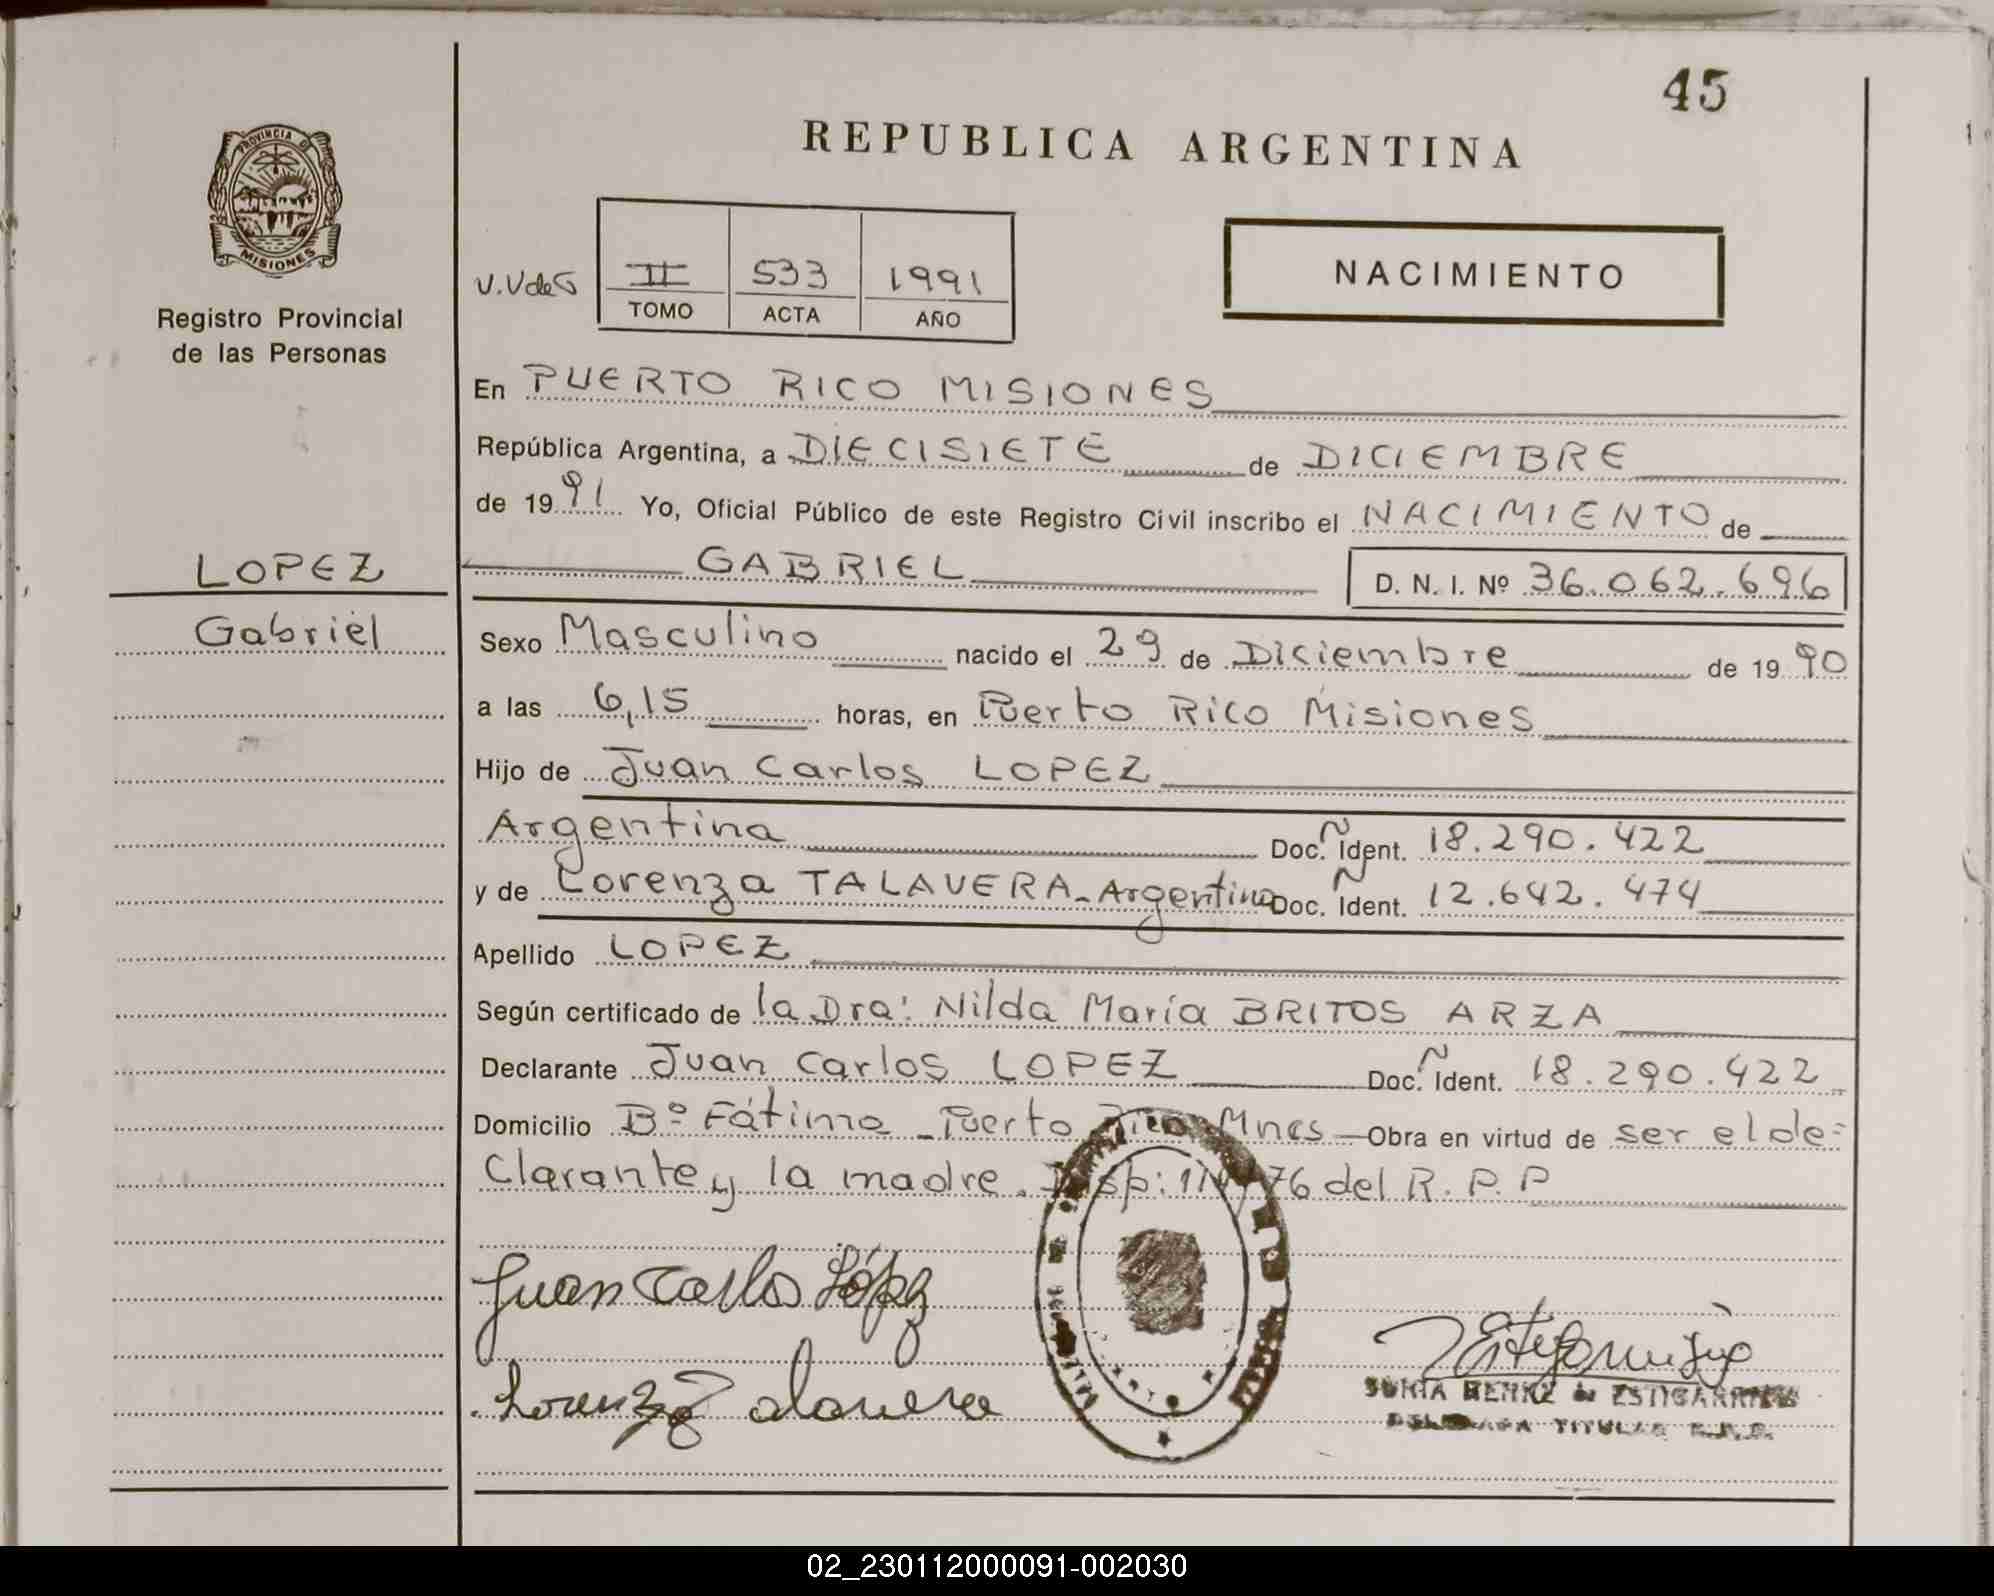 45
REPUBLICA ARGENTINA
PROVINCIA DE
MISIONES
Registro Provincial
de las Personas
V.VdeG
II 533 1991
TOMO ACTA AÑO
NACIMIENTO
En PUERTO RICO MISIONES
República Argentina, a DIECISIETE de DICIEMBRE
de 1991 Yo, Oficial Público de este Registro Civil inscribo el NACIMIENTO de
GABRIEL D. N. I. Nº 36.062.696
LOPEZ
Gabriel
Sexo Masculino nacido el 29 de Diciembre de 1990
a las 6,15 horas, en Puerto Rico Misiones
Hijo de Juan Carlos LOPEZ
Argentina Doc. Ident. 18.290.422
y de Lorenza TALAVERA-Argentina Doc. Ident. 12.642.474
Apellido LOPEZ
Según certificado de la Dra: Nilda María BRITOS ARZA
Declarante Juan Carlos LOPEZ Doc. Ident. 18.290.422
Domicilio Bº Fátima - Puerto Rico Mnes Obra en virtud de ser el de=
Clarante y la madre. Disp: /76 del R.P.P
Juan Carlos López
Lorenza Talavera
ESTIGARRIBIA
TITULAR
02_230112000091-002030